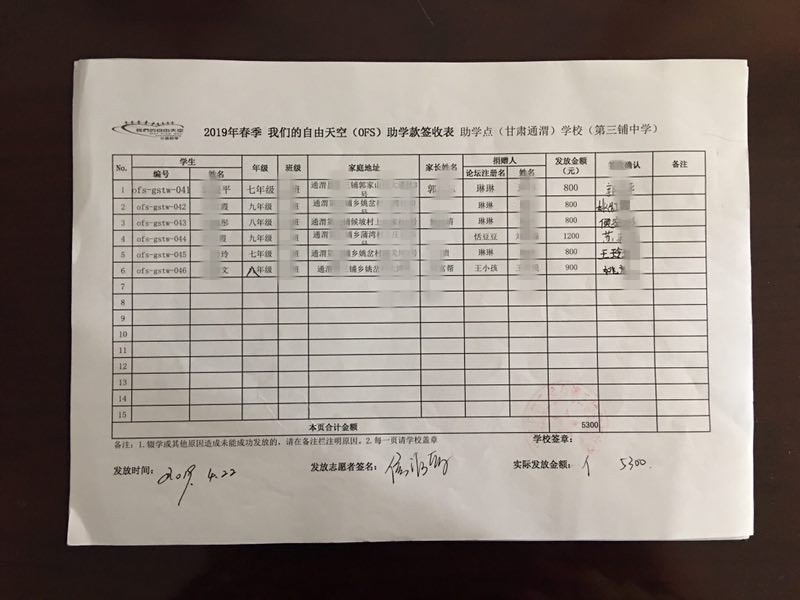 我們的自由天空
2019年春季 我们的自由天空（OFS）助学款签收表 助学点（甘肃通渭）学校（第三铺中学）
No. 学生 年级 班级 家庭地址 家长姓名 捐赠人 发放金额（元） 确认 备注
编号 姓名 论坛注册名 姓名
1 ofs-gstw-041 平 七年级 班 通渭 铺郭家山 郭 琳琳 800
2 ofs-gstw-042 霞 九年级 班 通渭 铺乡姚岔 号 琳琳 800
3 ofs-gstw-043 彤 八年级 班 通渭 铺候坡村上 清 琳琳 800
4 ofs-gstw-044 霞 九年级 班 通渭 乡蒲湾村 号 恬豆豆 1200 苏
5 ofs-gstw-045 玲 七年级 班 通渭第 铺乡姚岔村 号 贵 琳琳 800 王玲
6 ofs-gstw-046 文 八年级 班 通渭 铺乡姚岔村 号 富帮 王小孩 900 姚
7
8
9
10
11
12
13
14
15
本页合计金额 5300
备注：1.辍学或其他原因造成未能成功发放的，请在备注栏注明原因。2.每一页请学校盖章 学校签章：
发放时间： 2019. 4.22 发放志愿者签名： 实际发放金额： 5300.